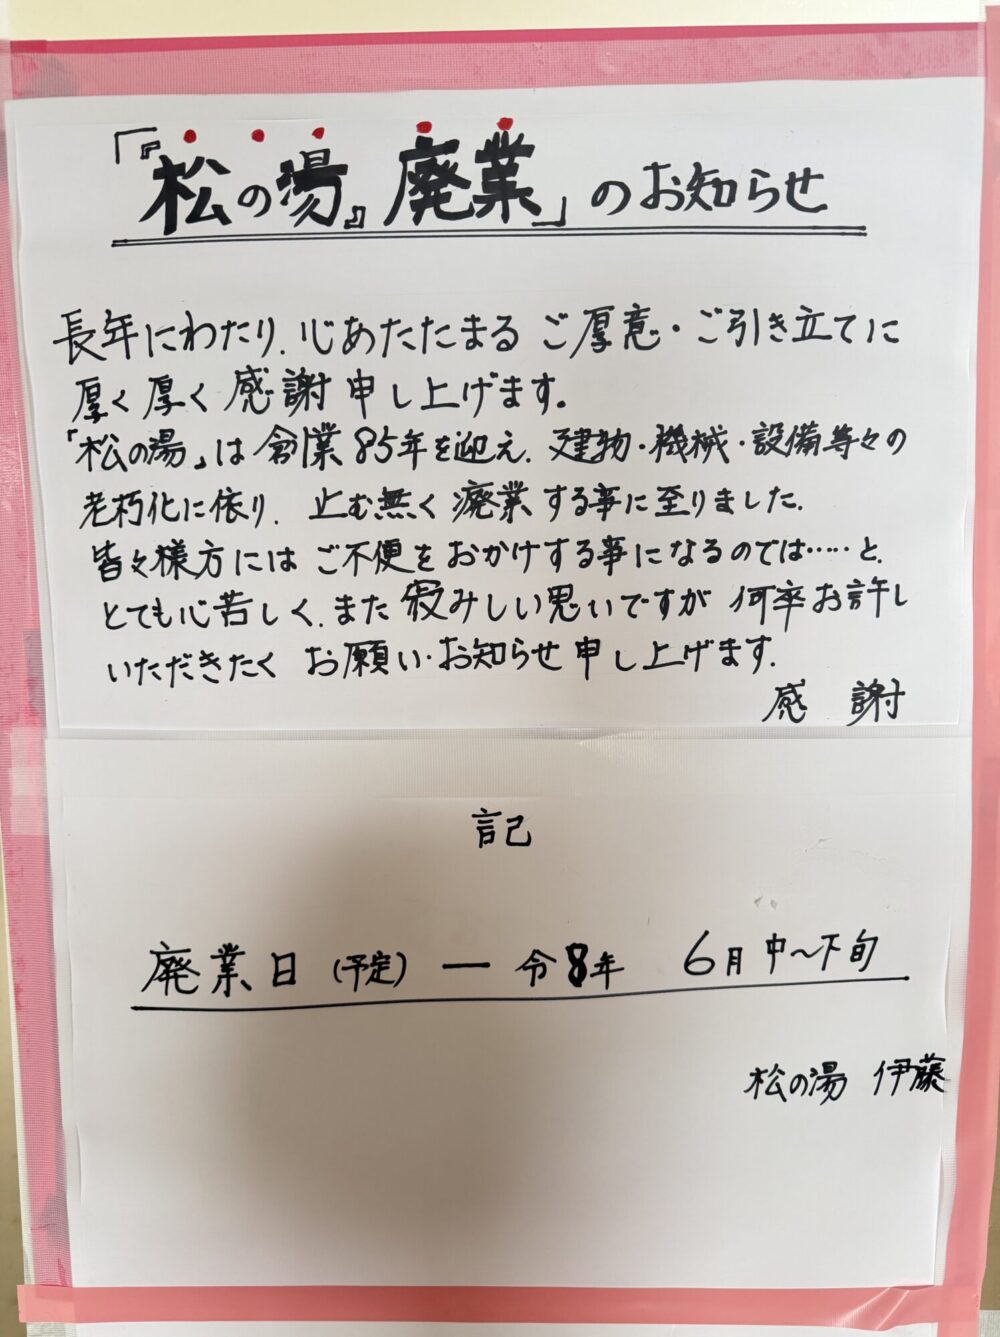 「『松の湯』廃業」のお知らせ
長年にわたり、心あたたまるご厚意・ご引き立てに
厚く厚く感謝申し上げます。
「松の湯」は創業85年を迎え、建物・機械・設備等々の
老朽化に依り、止む無く廃業する事に至りました。
皆々様方にはご不便をおかけする事になるのでは……と、
とても心苦しく、また寂みしい思いですが何卒お許し
いただきたくお願い・お知らせ申し上げます。
感謝
記
廃業日(予定)ー令8年 6月中〜下旬
松の湯 伊藤